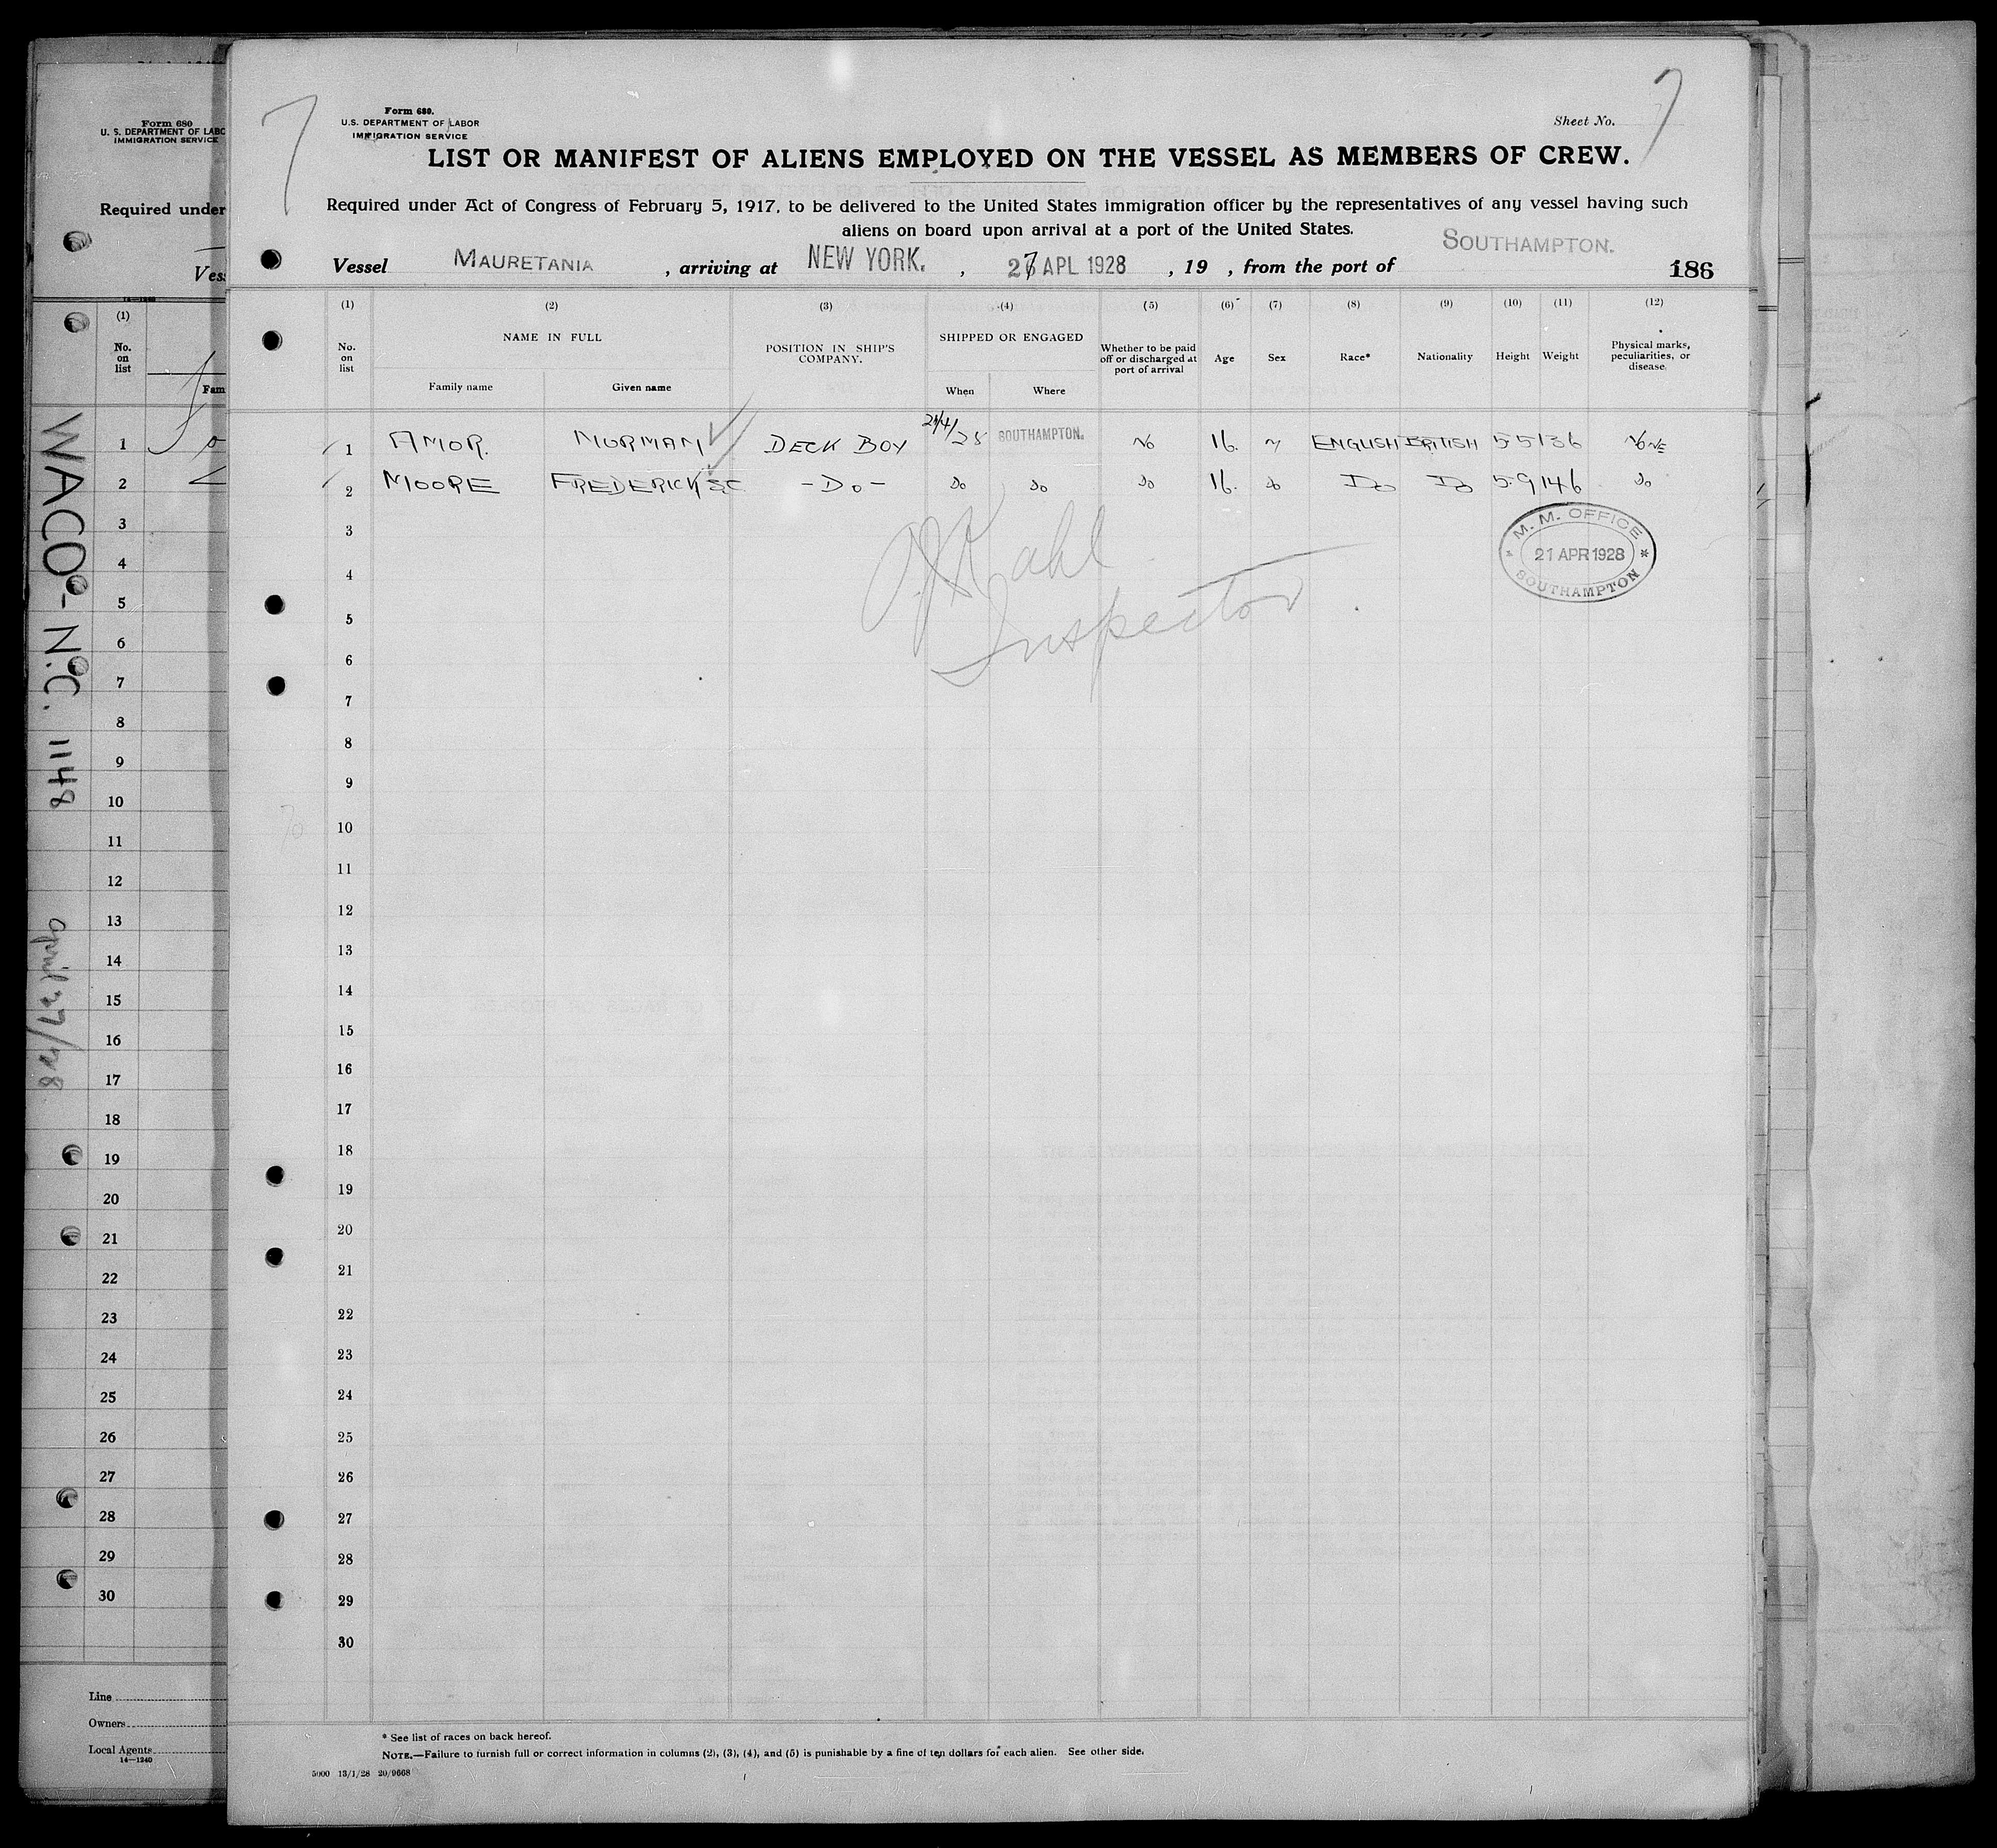 Form 680.
U.S. DEPARTMENT OF LABOR
IMMIGRATION SERVICE
Sheet No. 7
7
LIST OR MANIFEST OF ALIENS EMPLOYED ON THE VESSEL AS MEMBERS OF CREW.
Required under Act of Congress of February 5, 1917, to be delivered to the United States immigration officer by the representatives of any vessel having such
aliens on board upon arrival at a port of the United States.
Vessel MAURETANIA, arriving at NEW YORK., 27 APL 1928, 19 , from the port of SOUTHAMPTON.
186
(1) (2) (3) (4) (5) (6) (7) (8) (9) (10) (11) (12)
No. on list
NAME IN FULL
Family name
Given name
POSITION IN SHIP'S COMPANY.
SHIPPED OR ENGAGED
When
Where
Whether to be paid off or discharged at port of arrival
Age
Sex
Race*
Nationality
Height
Weight
Physical marks, peculiarities, or disease.
1 AMOR. NORMAN DECK BOY 21/4/28 SOUTHAMPTON. No 16. ENGLISH BRITISH 5-5 136 NONE
2 MOORE FREDERICK -Do- do do do 16. do Do Do 5-9 146 do
3
4
5
6
7
8
9
10
11
12
13
14
15
16
17
18
19
20
21
22
23
24
25
26
27
28
29
30
Kahl
Inspector
M. M. OFFICE
21 APR 1928
SOUTHAMPTON
* See list of races on back hereof.
NOTE.—Failure to furnish full or correct information in columns (2), (3), (4), and (5) is punishable by a fine of ten dollars for each alien. See other side.
5000 13/1/28 20/9668
Form 680
U. S. DEPARTMENT OF LABO
IMMIGRATION SERVICE
Required under
Ves
(1)
No. on list
Fam
1
2
3
4
5
6
7
8
9
10
11
12
13
14
15
16
17
18
19
20
21
22
23
24
25
26
27
28
29
30
Line
Owners
Local Agents
14—1240
WACO - N.C. 1148
April 27/28